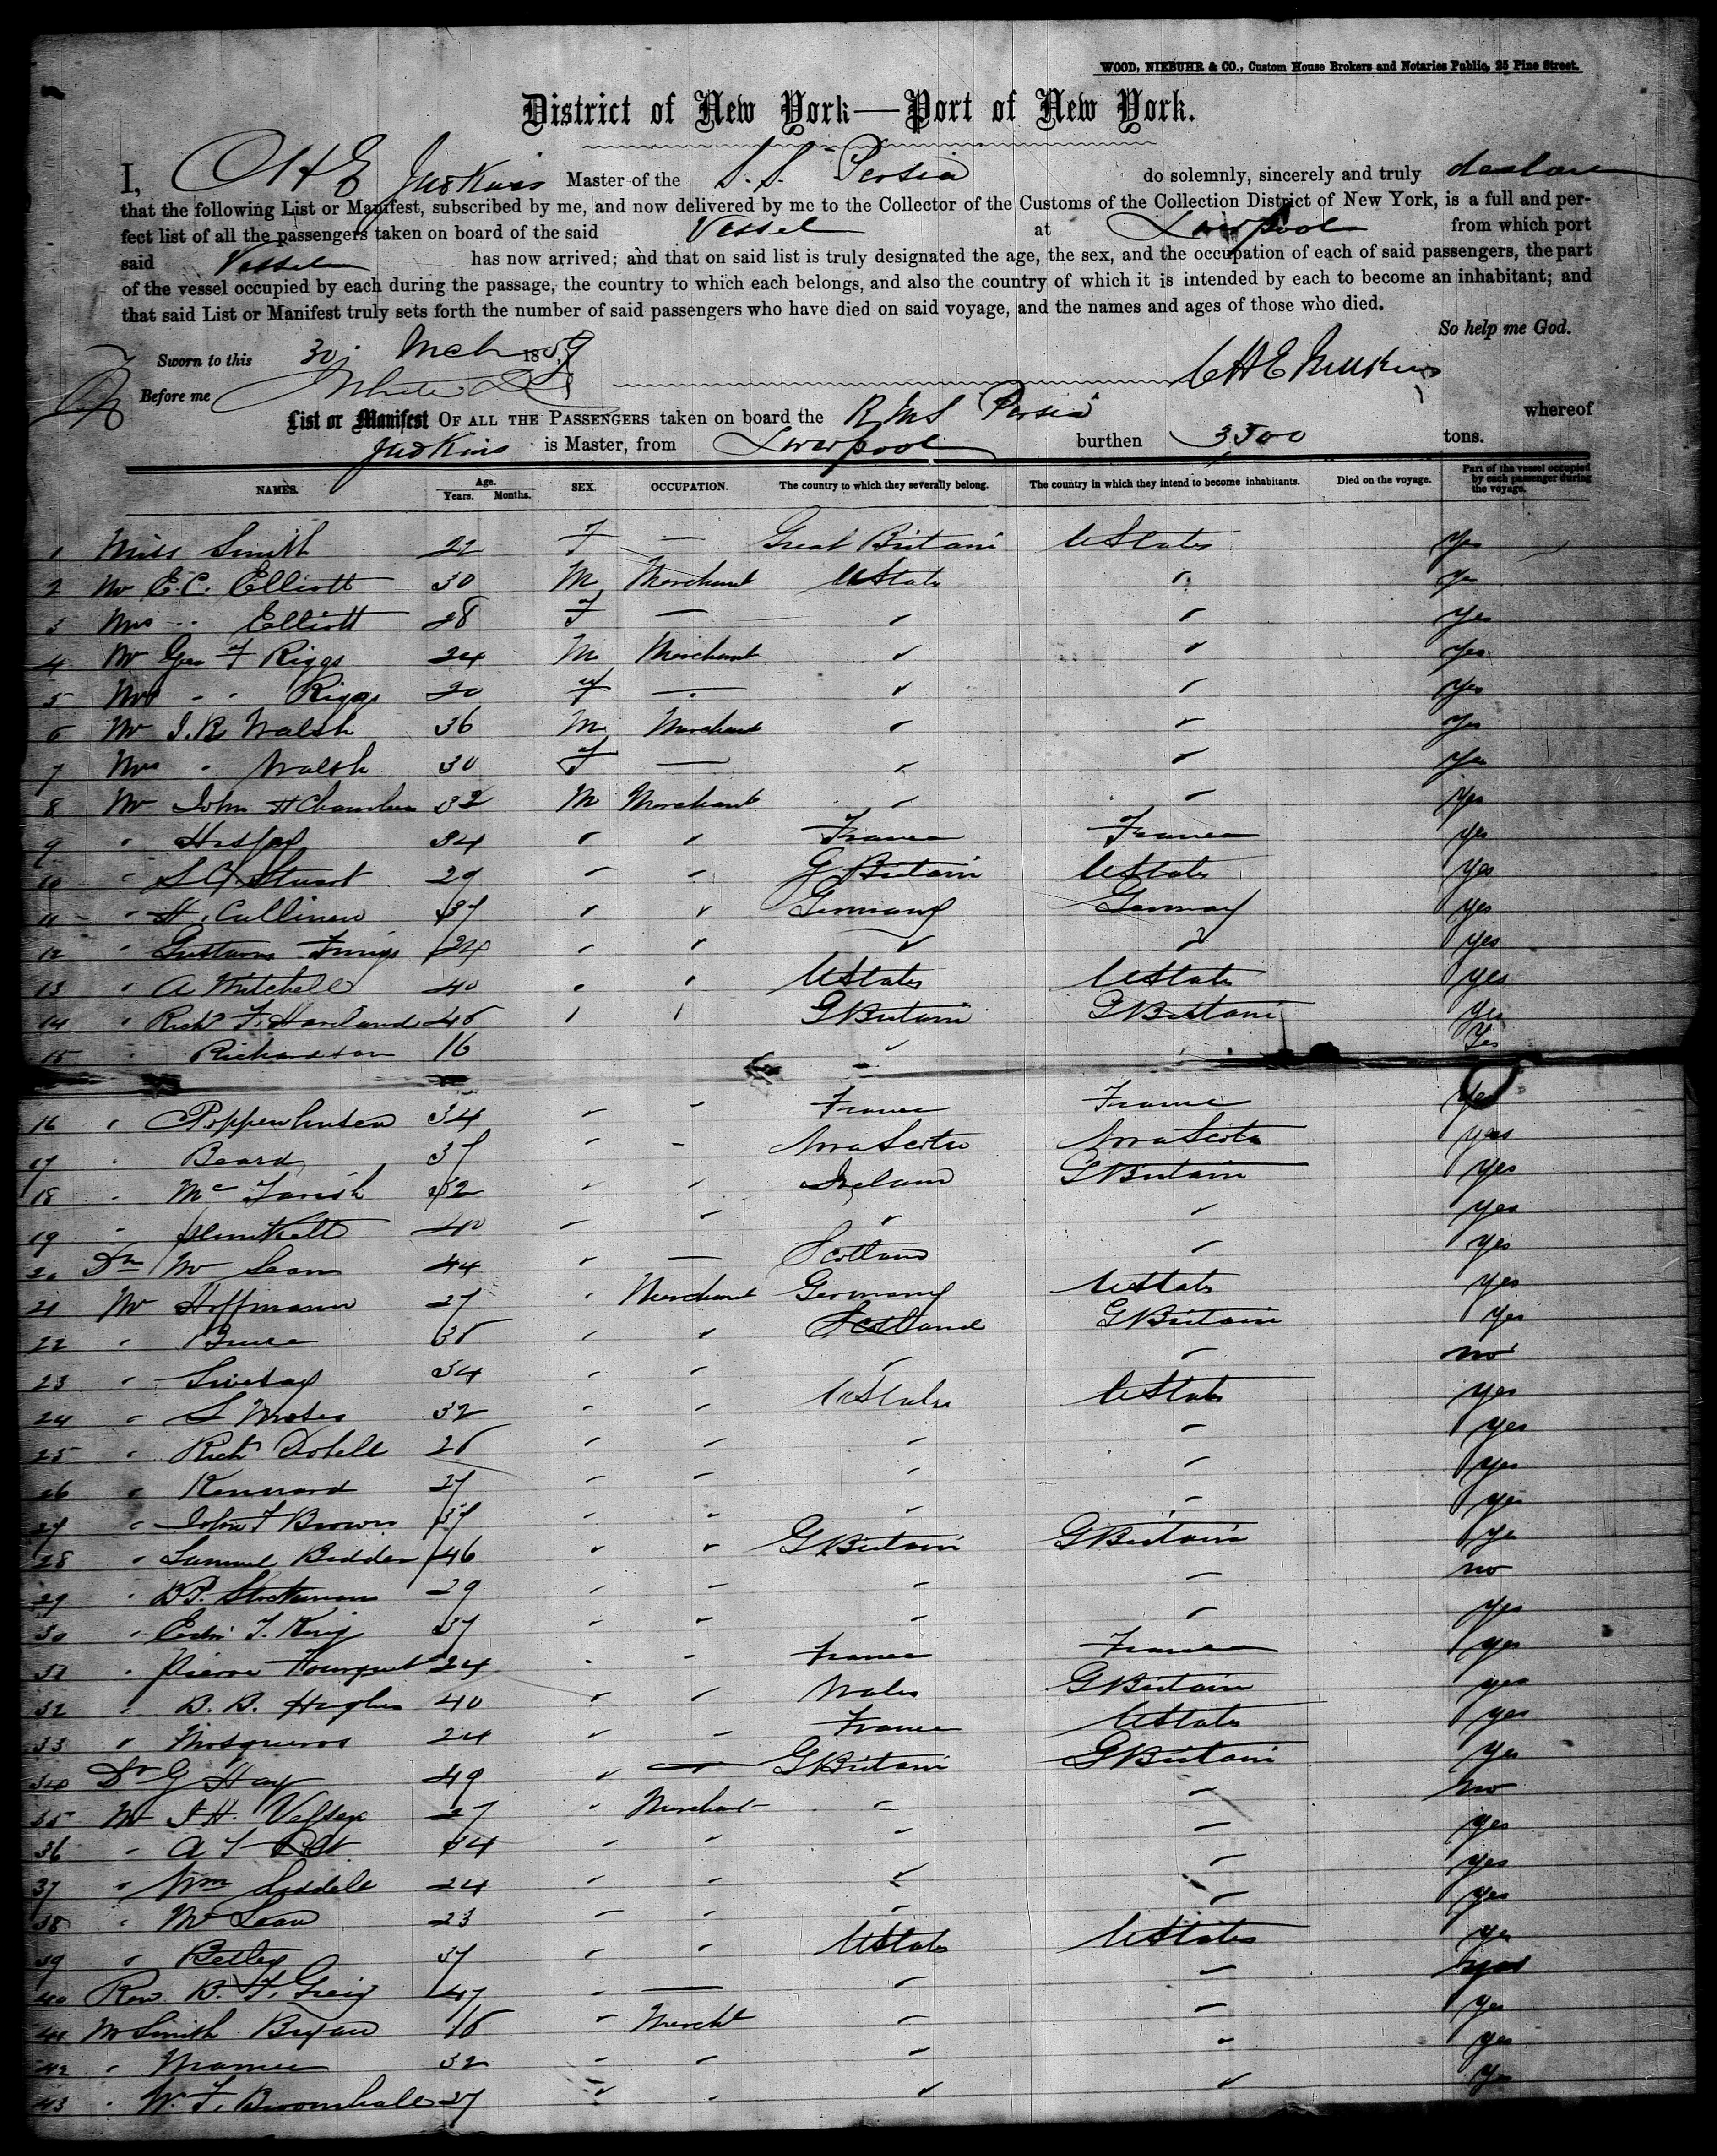 WOOD, NIEBUHR & CO., Custom House Brokers and Notaries Public, 25 Pine Street.
District of New York—Port of New York.
I, CHE Judkins Master of the S.S. Persia do solemnly, sincerely and truly declare
that the following List or Manifest, subscribed by me, and now delivered by me to the Collector of the Customs of the Collection District of New York, is a full and per-
fect list of all the passengers taken on board of the said Vessel at Liverpool from which port
said Vessel has now arrived; and that on said list is truly designated the age, the sex, and the occupation of each of said passengers, the part
of the vessel occupied by each during the passage, the country to which each belongs, and also the country of which it is intended by each to become an inhabitant; and
that said List or Manifest truly sets forth the number of said passengers who have died on said voyage, and the names and ages of those who died.
So help me God.
Sworn to this 30 Mch 1859 CHE Judkins
Before me White
List or Manifest OF ALL THE PASSENGERS taken on board the RMS Persia whereof
Judkins is Master, from Liverpool burthen 3500 tons.
NAMES. Age. Years. Months. SEX. OCCUPATION. The country to which they severally belong. The country in which they intend to become inhabitants. Died on the voyage. Part of the vessel occupied by each passenger during the voyage.
1 Miss Smith 22 F — Great Britain UStates Yes
2 Mr E.C. Elliott 30 M Merchant UStates " Yes
3 Mrs " Elliott 28 F — " " Yes
4 Mr Geo F Riggs 24 M Merchant " " Yes
5 Mrs " " Riggs 20 F — " " Yes
6 Mr J.R. Walsh 36 M Merchant " " Yes
7 Mrs " Walsh 30 F — " " Yes
8 Mr John H Chambers 32 M Merchant " " Yes
9 " 34 " " France France Yes
10 " Stuart 29 " " G Britain UStates Yes
11 " H. Cullinen 37 " " Germany Germany Yes
12 " Gustavus 24 " " " " Yes
13 " A Mitchell 40 " " UStates UStates Yes
14 " Richd F. Haviland 45 " " GBritain GBritain Yes
15 " Richardson 16 " Yes
16 " Poppenhusen 34 " " France France Yes
17 " Beard 37 " " Nova Scotia Nova Scotia Yes
18 " Mc 32 " " Ireland GBritain Yes
19 " 40 " " " " Yes
20 Dr Mc Lean 44 " — Scotland " Yes
21 Mr Hoffmann 27 " Merchant Germany UStates Yes
22 " Bruce 35 " " Scotland GBritain Yes
23 " 34 " " " " no
24 " S Moses 32 " " UStates UStates Yes
25 " Richd 25 " " " " Yes
26 " Kennard 27 " " " " Yes
27 " John F Brown 37 " " " " Yes
28 " Samuel 46 " " GBritain GBritain Yes
29 " 29 " " " " no
30 " King 37 " " " " Yes
31 " Pierre Fourquet 24 " " France France Yes
32 " B.B. Hughes 40 " " Wales GBritain Yes
33 " Mosqueros 24 " " France UStates Yes
34 Dr G Hay 49 " — GBritain GBritain Yes
35 Mr 27 " Merchant " " no
36 " A 34 " " " " Yes
37 " Wm Liddell 24 " " " " Yes
38 " Mc Lean 23 " " " " Yes
39 " Betley 37 " " UStates UStates Yes
40 Rev. B. F. Greig 47 " — " " Yes
41 Mr Smith Bryan 18 " Mercht " " Yes
42 " 32 " " " " Yes
43 " W. F. Broomhall 27 " " " " Yes